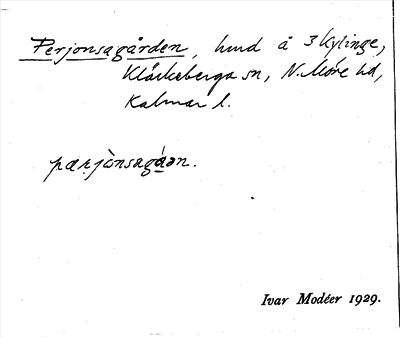 Perjonsagården, hmd å 3 Kylinge,
Kläckeberga sn, N. Möre hd,
Kalmar l.
pærjònsagáən.
Ivar Modéer 1929.